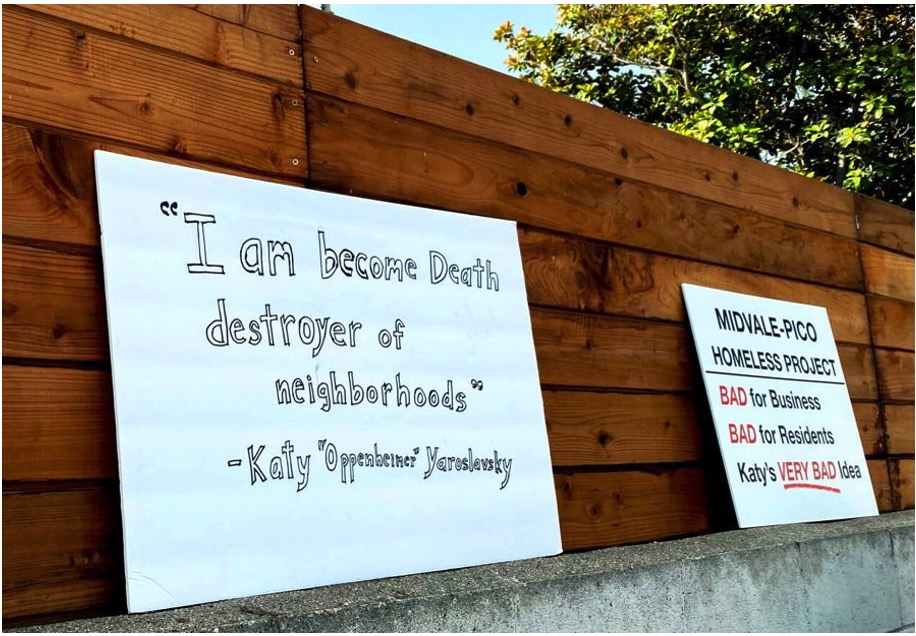 “I am become Death
destroyer of
neighborhoods”
-Katy "Oppenheimer" Yaroslavsky
MIDVALE-PICO
HOMELESS PROJECT
BAD for Business
BAD for Residents
Katy's VERY BAD Idea